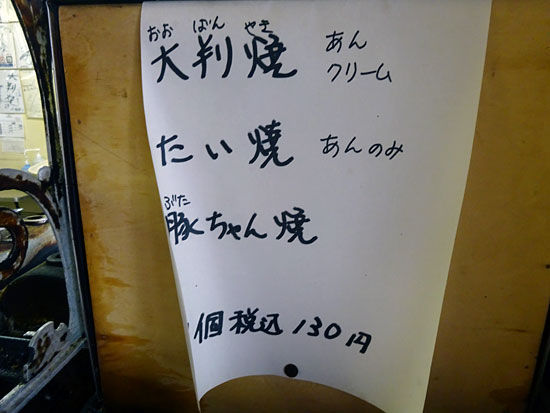 おおばんやき
大判焼 あん
クリーム
たい焼 あんのみ
ぶた
豚ちゃん焼
1個税込130円